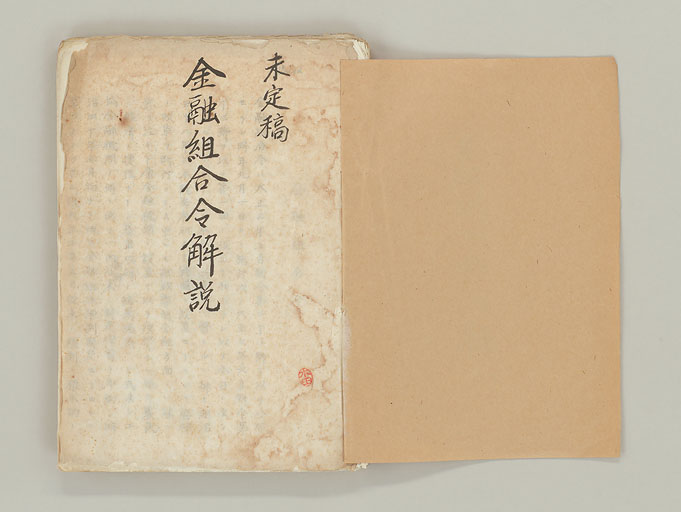 未定稿
金融組合令解説